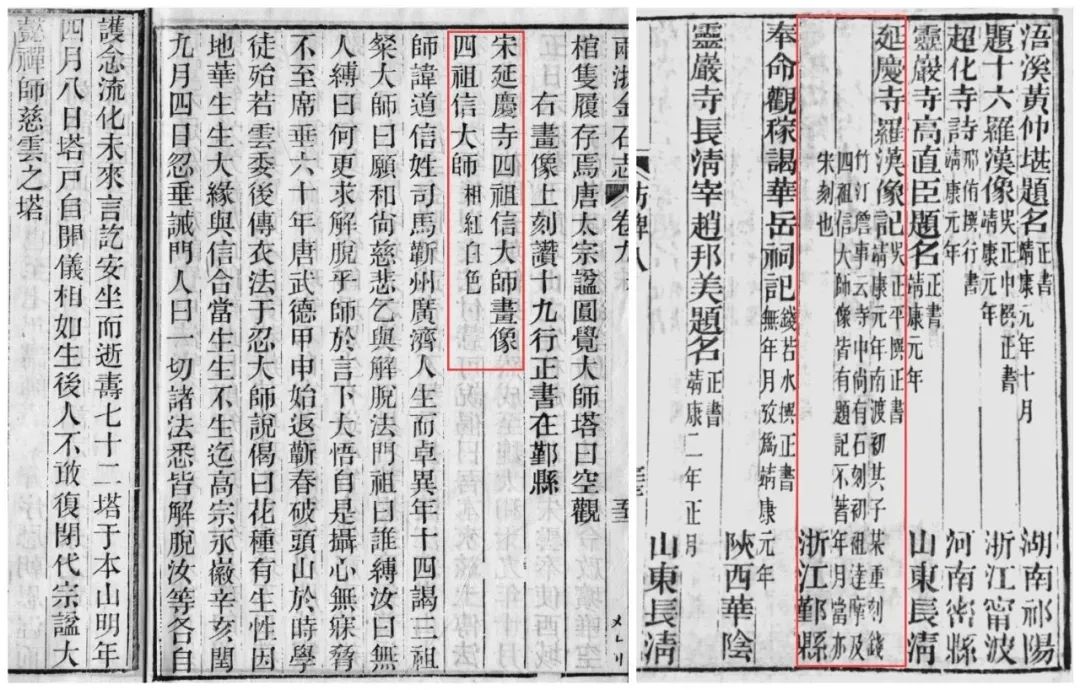 兩浙金石志 卷九
棺隻履存焉唐太宗諡圓覺大師塔曰空觀
右畫像上刻讚十九行正書在鄞縣
宋延慶寺四祖信大師畫像
四祖信大師 相紅白色
師諱道信姓司馬蘄州廣濟人生而卓異年十四謁三祖
粲大師曰願和尚慈悲乞與解脫法門祖曰誰縛汝曰無
人縛曰何更求解脫乎師於言下大悟自是攝心無寐脅
不至席垂六十年唐武德甲申始返蘄春破頭山於時學
徒始若雲委後傳衣法于忍大師說偈曰花種有生性因
地華生生大緣與信合當生生不生迄高宗永徽辛亥閏
九月四日忍垂誡門人曰一切諸法悉皆解脫汝等各自
護念流化未來言訖安坐而逝壽七十二塔于本山明年
四月八日塔戶自開儀相如生後人不敢復閉代宗諡大
懿禪師慈雲之塔
浯溪黃仲堪題名 正書 靖康元年十月 湖南祁陽
題十六羅漢像 吳正中撰正書 靖康元年 浙江甯波
超化寺詩 邢倚撰行書 靖康元年 河南密縣
靈巖寺高直臣題名 正書 靖康元年 山東長清
延慶寺羅漢像記 吳正平撰正書 靖康元年南渡初其子某重刻錢 浙江鄞縣
竹汀詹事云寺中尚有石刻初祖達摩及
四祖信大師像皆有題記不著年月當亦
宋刻也
奉命觀稼謁華岳祠記 錢若水撰正書 無年月攷爲靖康元年 陝西華陰
靈巖寺長清宰趙邦美題名 正書 靖康二年正月 山東長清